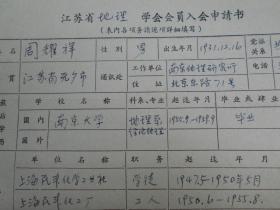 江苏省地理 学会会员入会申请书
(表内各项务请逐项详细填写)
名 周耀祥 性别 男 出生年月 1931.12.16 党派关系
江苏南 市 通讯处 工作单位 南京地理研究所
地址 北京东路71号
学校名称 科系、专业 起讫年月 毕业或肄业
国内 南京大学 地理系 1955.9–1959.9 毕业
国外
单位名称 职务 起讫年月
上海 化学工业社 学徒 1947.5–1950年5月
上海 化工厂 工人 1950.6–1955.8.